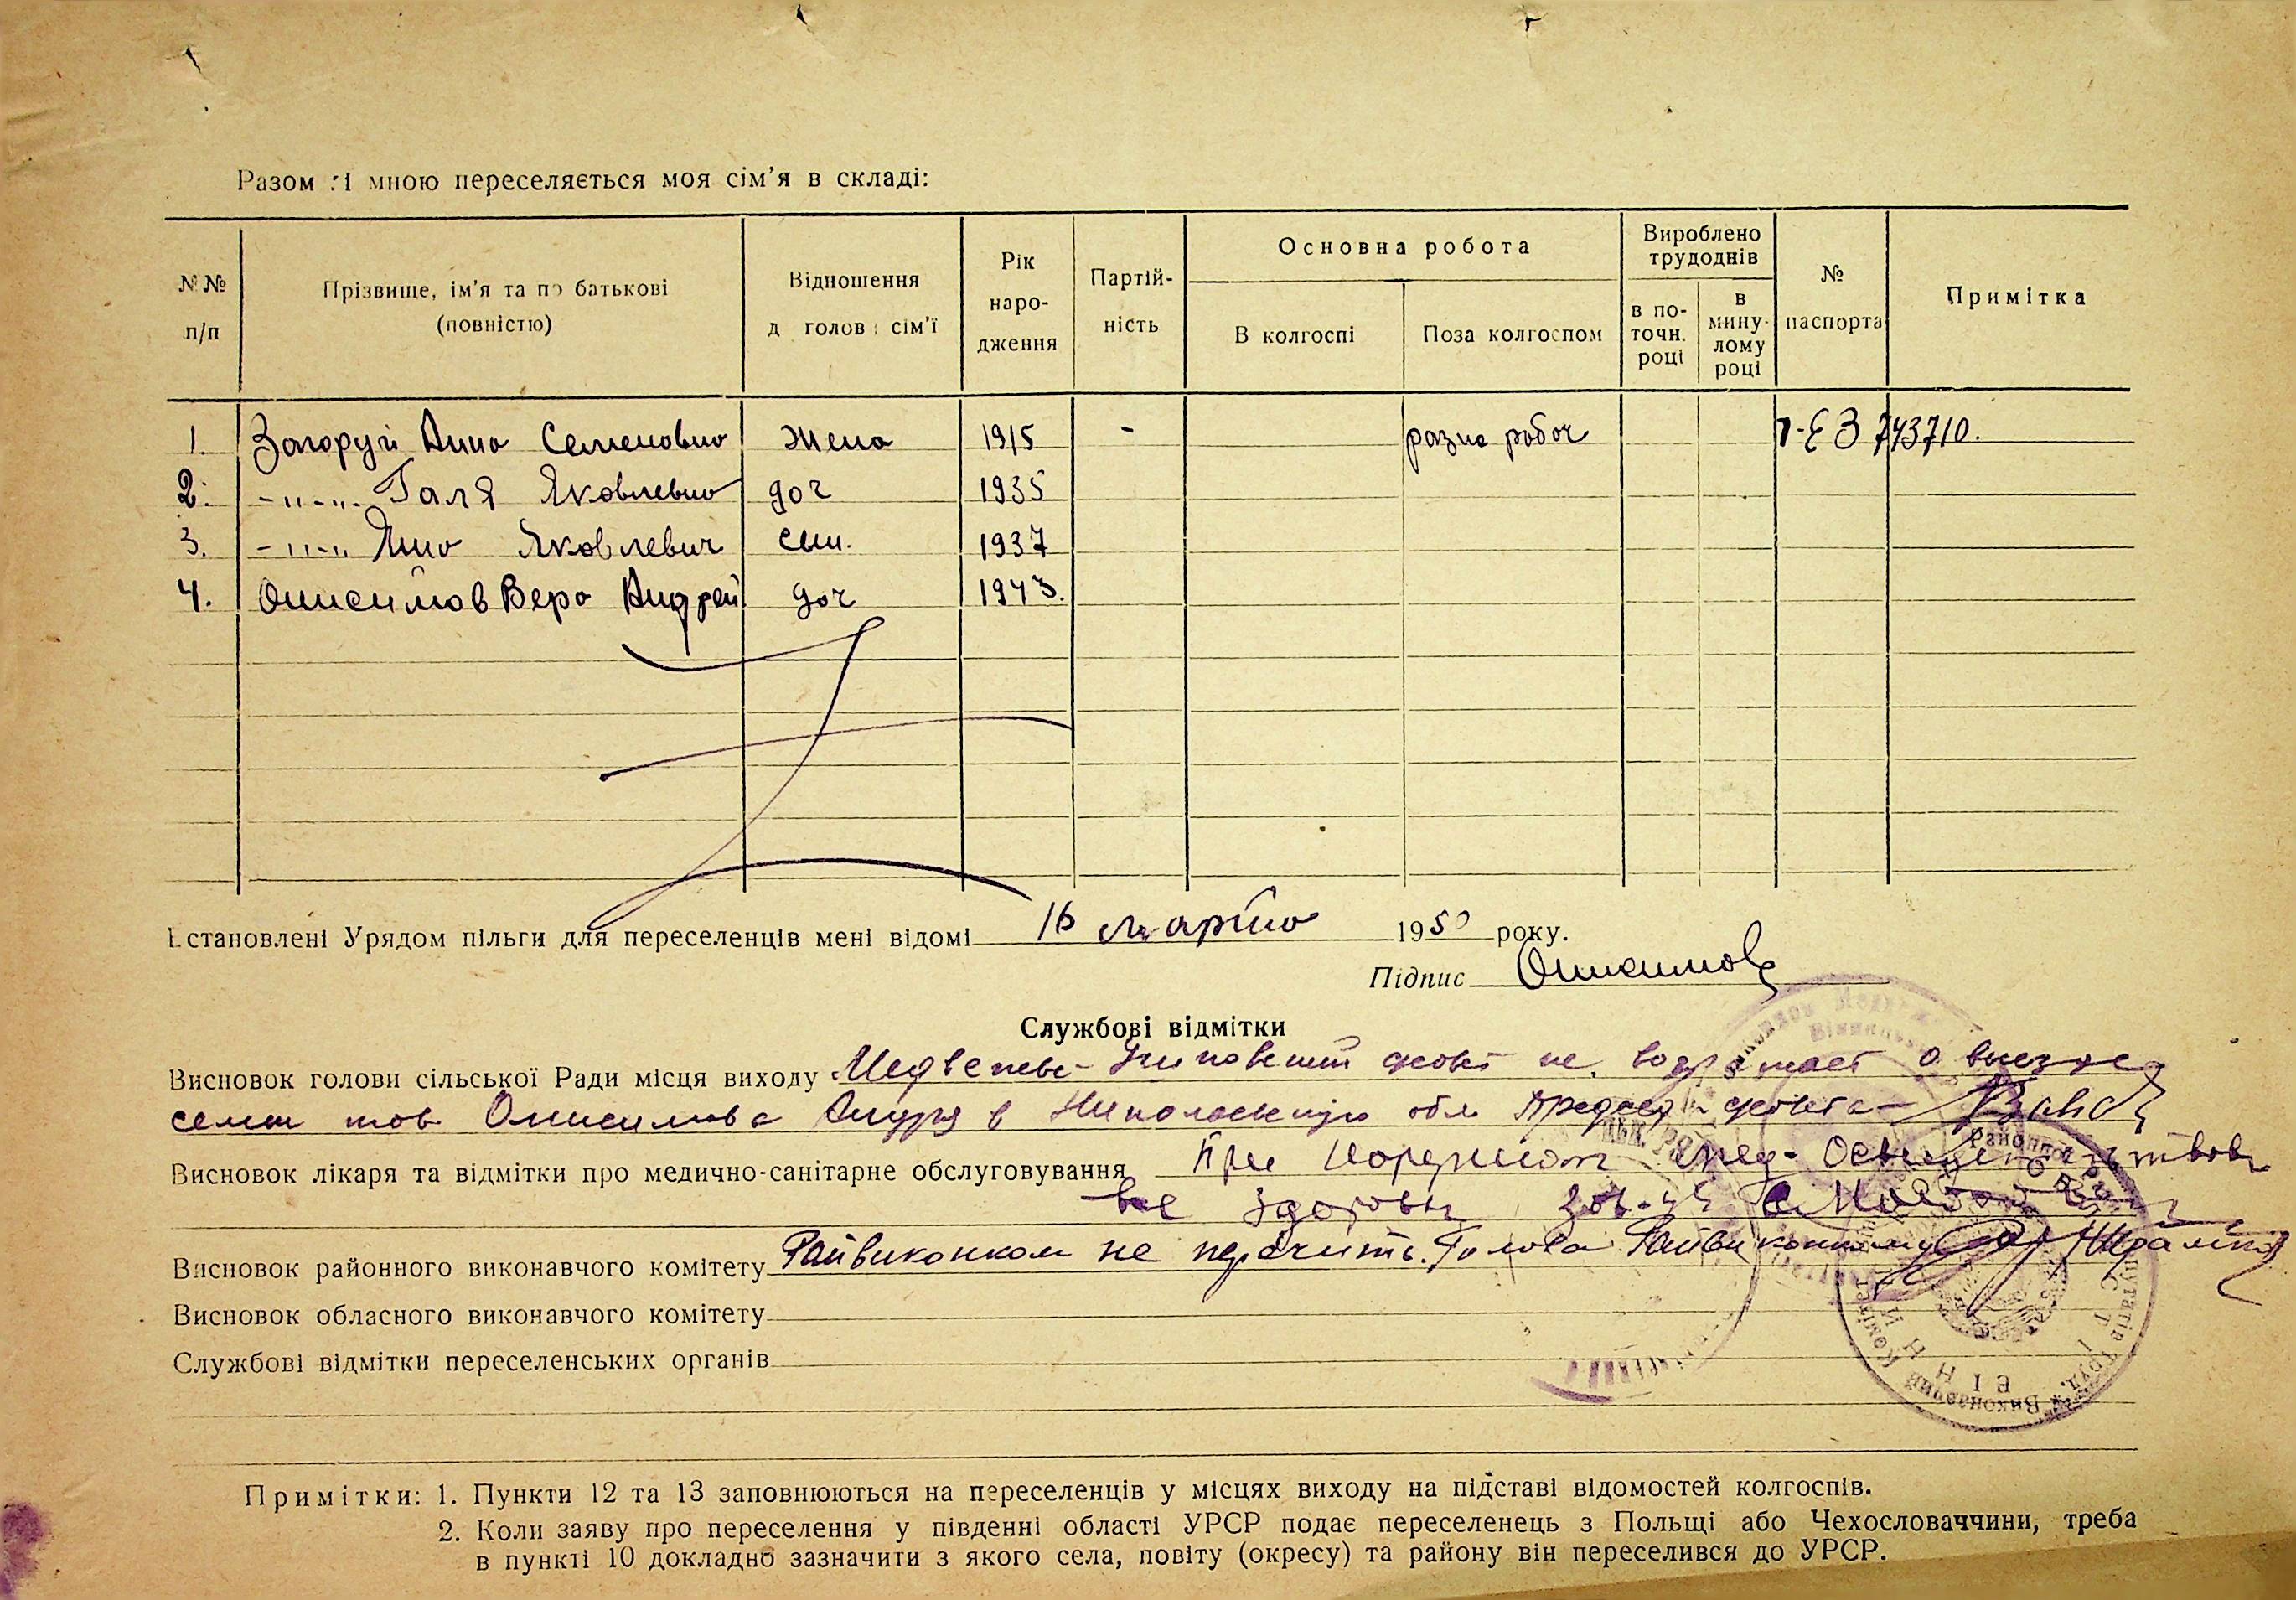 Разом зі мною переселяється моя сім'я в складі:
№№ п/п
Прізвище, ім'я та по батькові (повністю)
Відношення д голов сім'ї
Рік народження
Партійність
Основна робота
В колгоспі
Поза колгоспом
Вироблено трудоднів
в поточн. році
в минулому році
№ паспорта
Примітка
1. Загоруй Анна Семеновна жена 1915 - разна робоч 743710.
2. -"-"- Галя Яковлевна доч 1935
3. -"-"- Яковлевич сын. 1937
4. Онисимов Вера Андрей доч 1943.
Встановлені Урядом пільги для переселенців мені відомі 16 марта 1950 року.
Підпис Онисимов
Службові відмітки
Висновок голови сільської Ради місця виходу совет не о выезде
семьи тов Онисимова в Николаевскую обл совета
Висновок лікаря та відмітки про медично-санітарне обслуговування При
все здоровы
Висновок районного виконавчого комітету Райвиконком не перечить. Голова Райвиконкому
Висновок обласного виконавчого комітету
Службові відмітки переселенських органів
Примітки: 1. Пункти 12 та 13 заповнюються на переселенців у місцях виходу на підставі відомостей колгоспів.
2. Коли заяву про переселення у південні області УРСР подає переселенець з Польщі або Чехословаччини, треба
в пункті 10 докладно зазначити з якого села, повіту (округу) та району він переселився до УРСР.